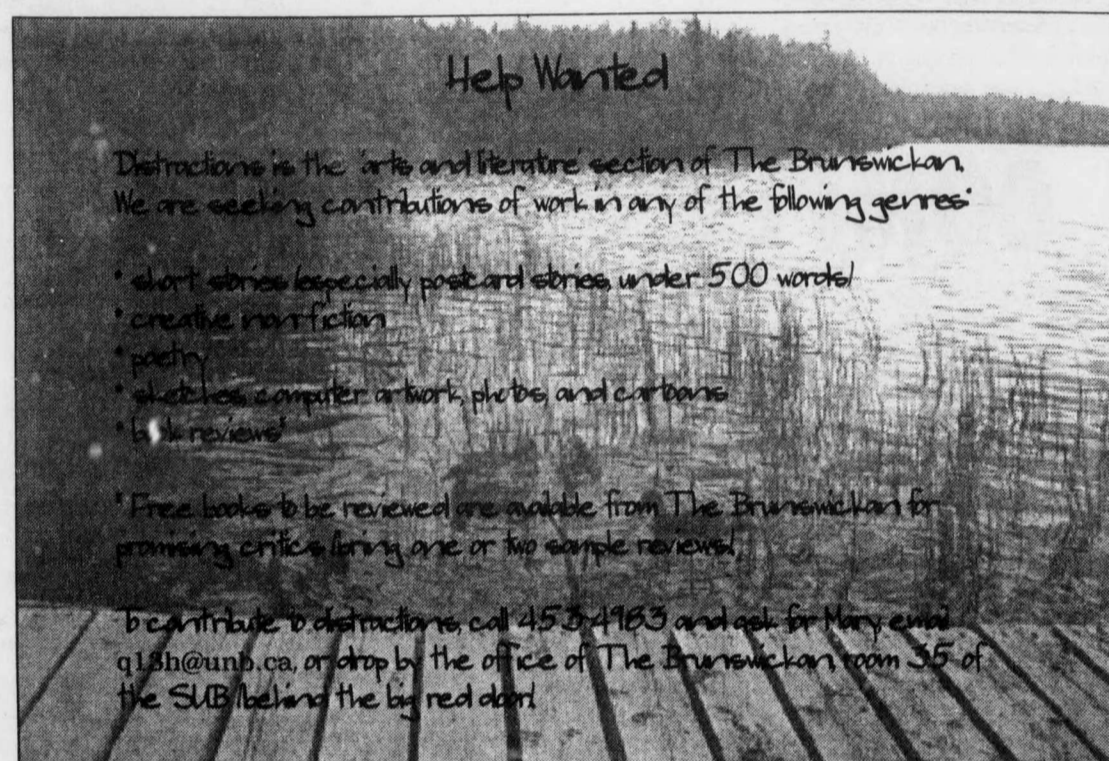 Help Wanted
Distractions is the 'arts and literature' section of The Brunswickan.
We are seeking contributions of work in any of the following genres:
* short stories (especially postcard stories, under 500 words)
* creative non-fiction
* poetry
* sketches, computer artwork, photos, and cartoons
* book reviews*
* Free books to be reviewed are available from The Brunswickan for
promising critics (bring one or two sample reviews).
To contribute to distractions, call 453-4983 and ask for Mary, email
q13h@unb.ca, or drop by the office of The Brunswickan, room 35 of
the SUB (behind the big red door).